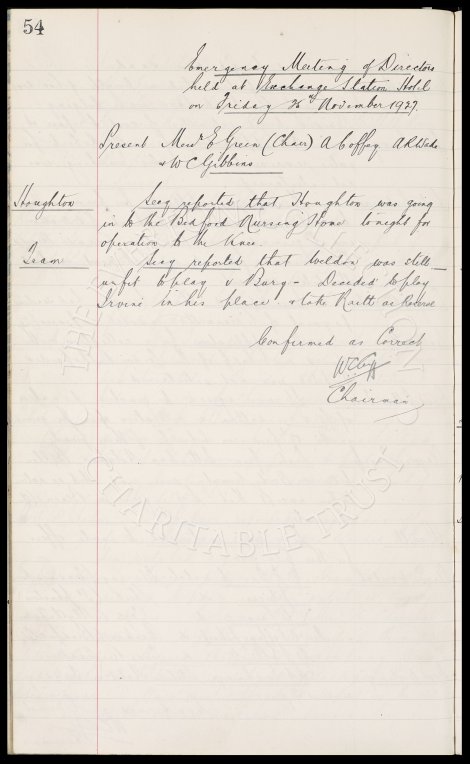 54
Emergency Meeting of Directors
held at Exchange Station Hotel
on Friday 25th November 1927.
Present Messrs E Green (Chair) A Coffey. A R Wade
& W C Gibbins
Houghton
Secy reported that Houghton was going
in to the Bedford Nursing Home tonight for
operation to the Knee.
Team
Secy reported that Weldon was still
unfit to play v Bury - Decided to play
Irvine in his place & take Raitt as Reserve
Confirmed as Correct
Chairman
CHARITABLE TRUST